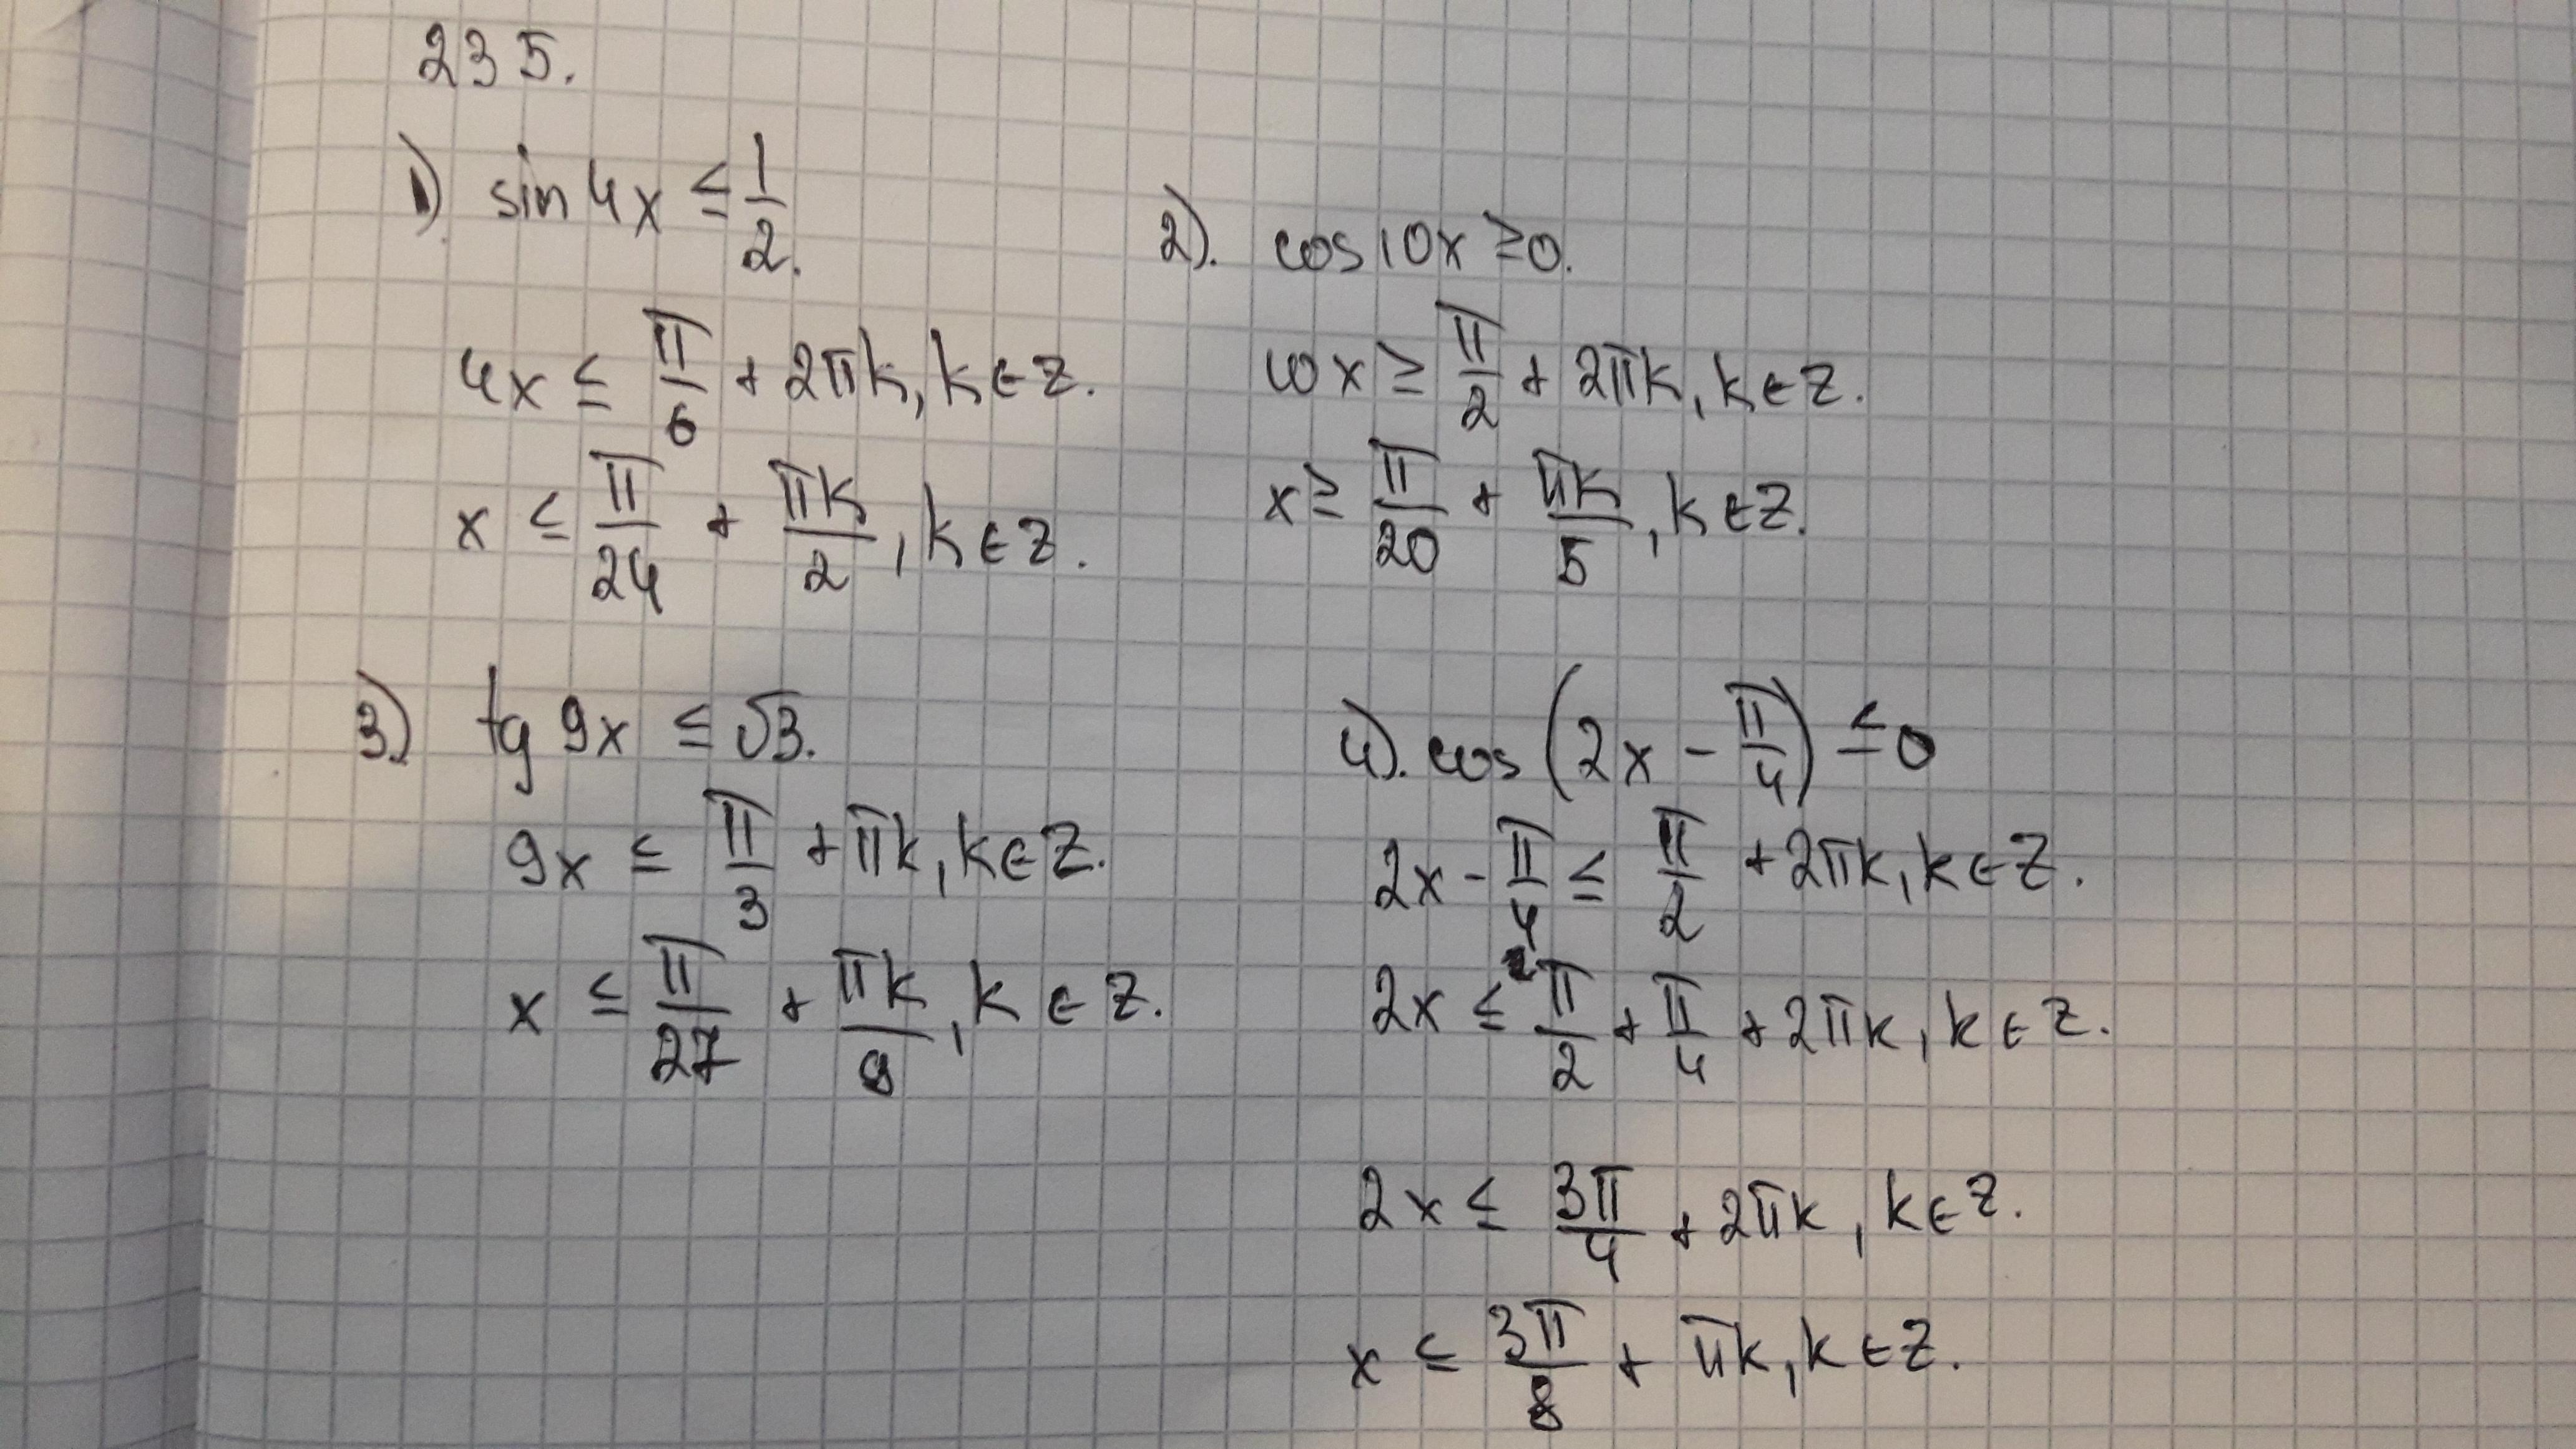 235.
1) sin 4x ≤ 1/2.
4x ≤ π/6 + 2πk, k ∈ Z.
x ≤ π/24 + πk/2, k ∈ Z.
2). cos 10x ≥ 0.
10x ≥ π/2 + 2πk, k ∈ Z.
x ≥ π/20 + πk/5, k ∈ Z.
3) tg 9x ≤ √3.
9x ≤ π/3 + πk, k ∈ Z.
x ≤ π/27 + πk/9, k ∈ Z.
4). cos (2x - π/4) ≤ 0
2x - π/4 ≤ π/2 + 2πk, k ∈ Z.
2x ≤ π/2 + π/4 + 2πk, k ∈ Z.
2x ≤ 3π/4 + 2πk, k ∈ Z.
x ≤ 3π/8 + πk, k ∈ Z.